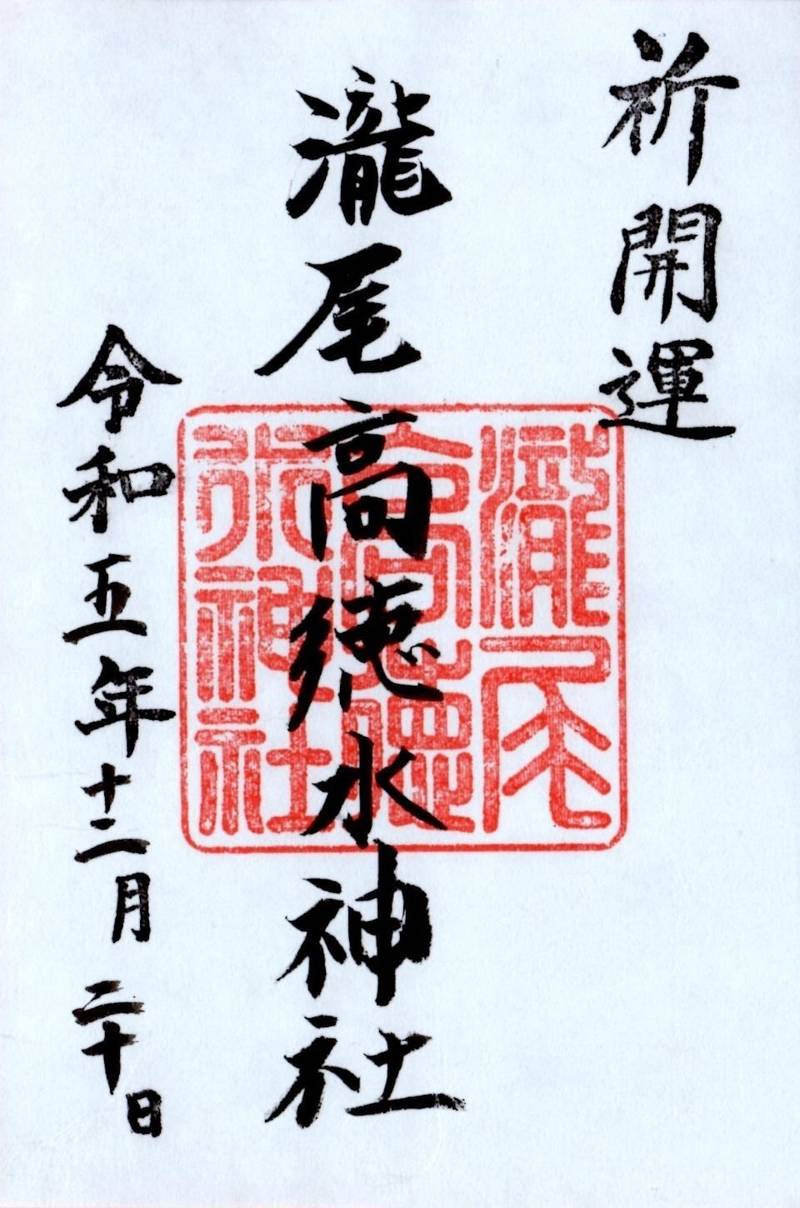 祈開運
瀧尾高徳水神社
令和五年十二月二十日
瀧尾
高徳
水神社